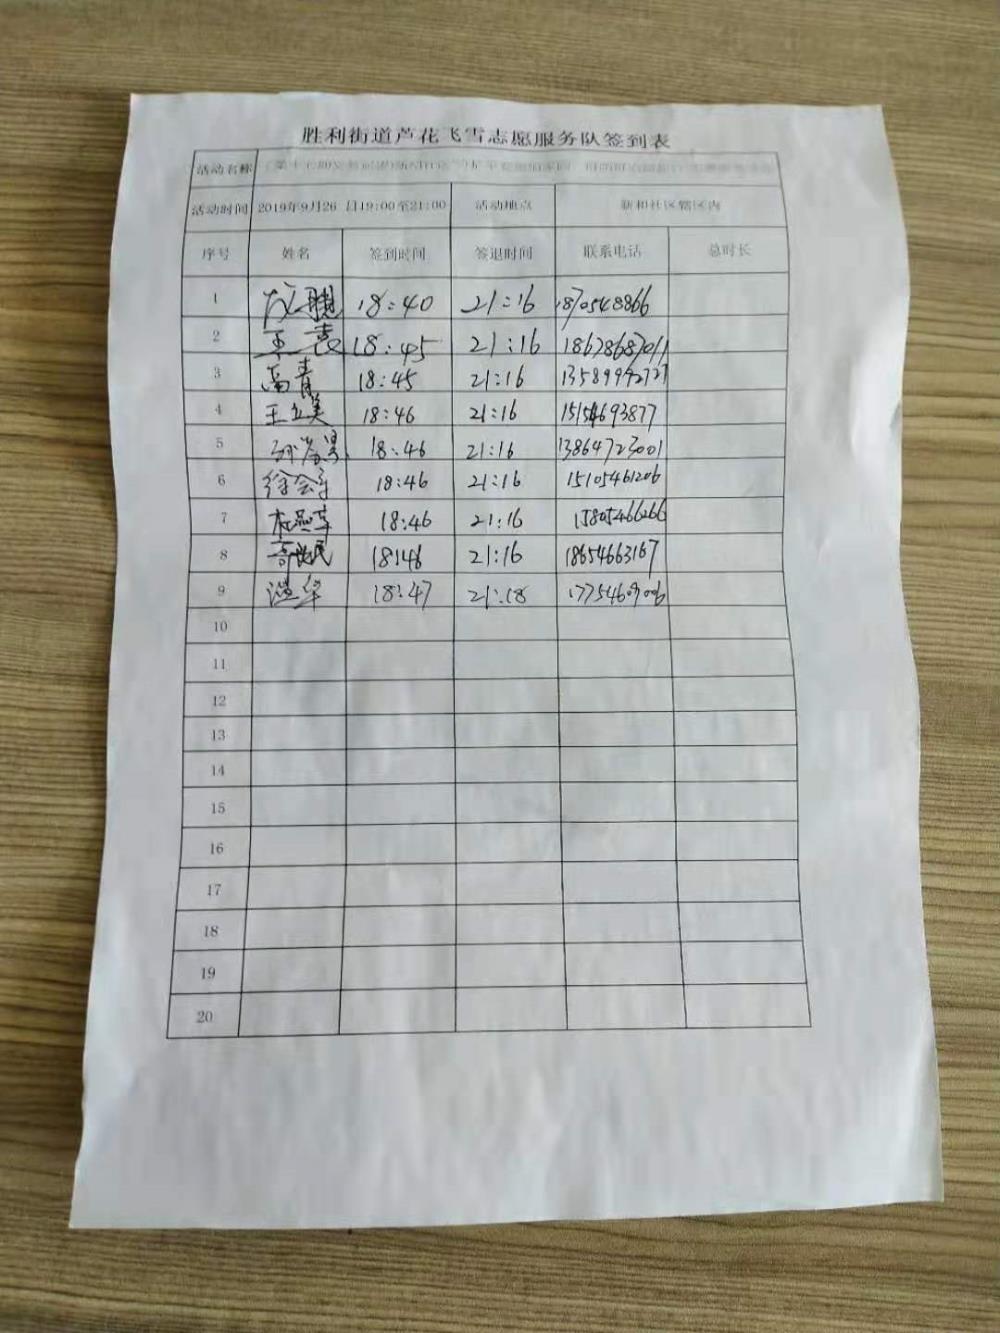 胜利街道芦花飞雪志愿服务队签到表
活动名称
活动时间 2019年9月26 日19:00至21:00 活动地点 新和社区辖区内
序号 姓名 签到时间 签退时间 联系电话 总时长
1 18:40 21:16 1870548866
2 王 18:45 21:16 18678687011
3 高青 18:45 21:16 13589992727
4 王立美 18:46 21:16 15154693877
5 18:46 21:16 13864723001
6 徐会 18:46 21:16 15105461206
7 杜 18:46 21:16 15805466266
8 18:46 21:16 18654663167
9 华 18:47 21:18
10
11
12
13
14
15
16
17
18
19
20